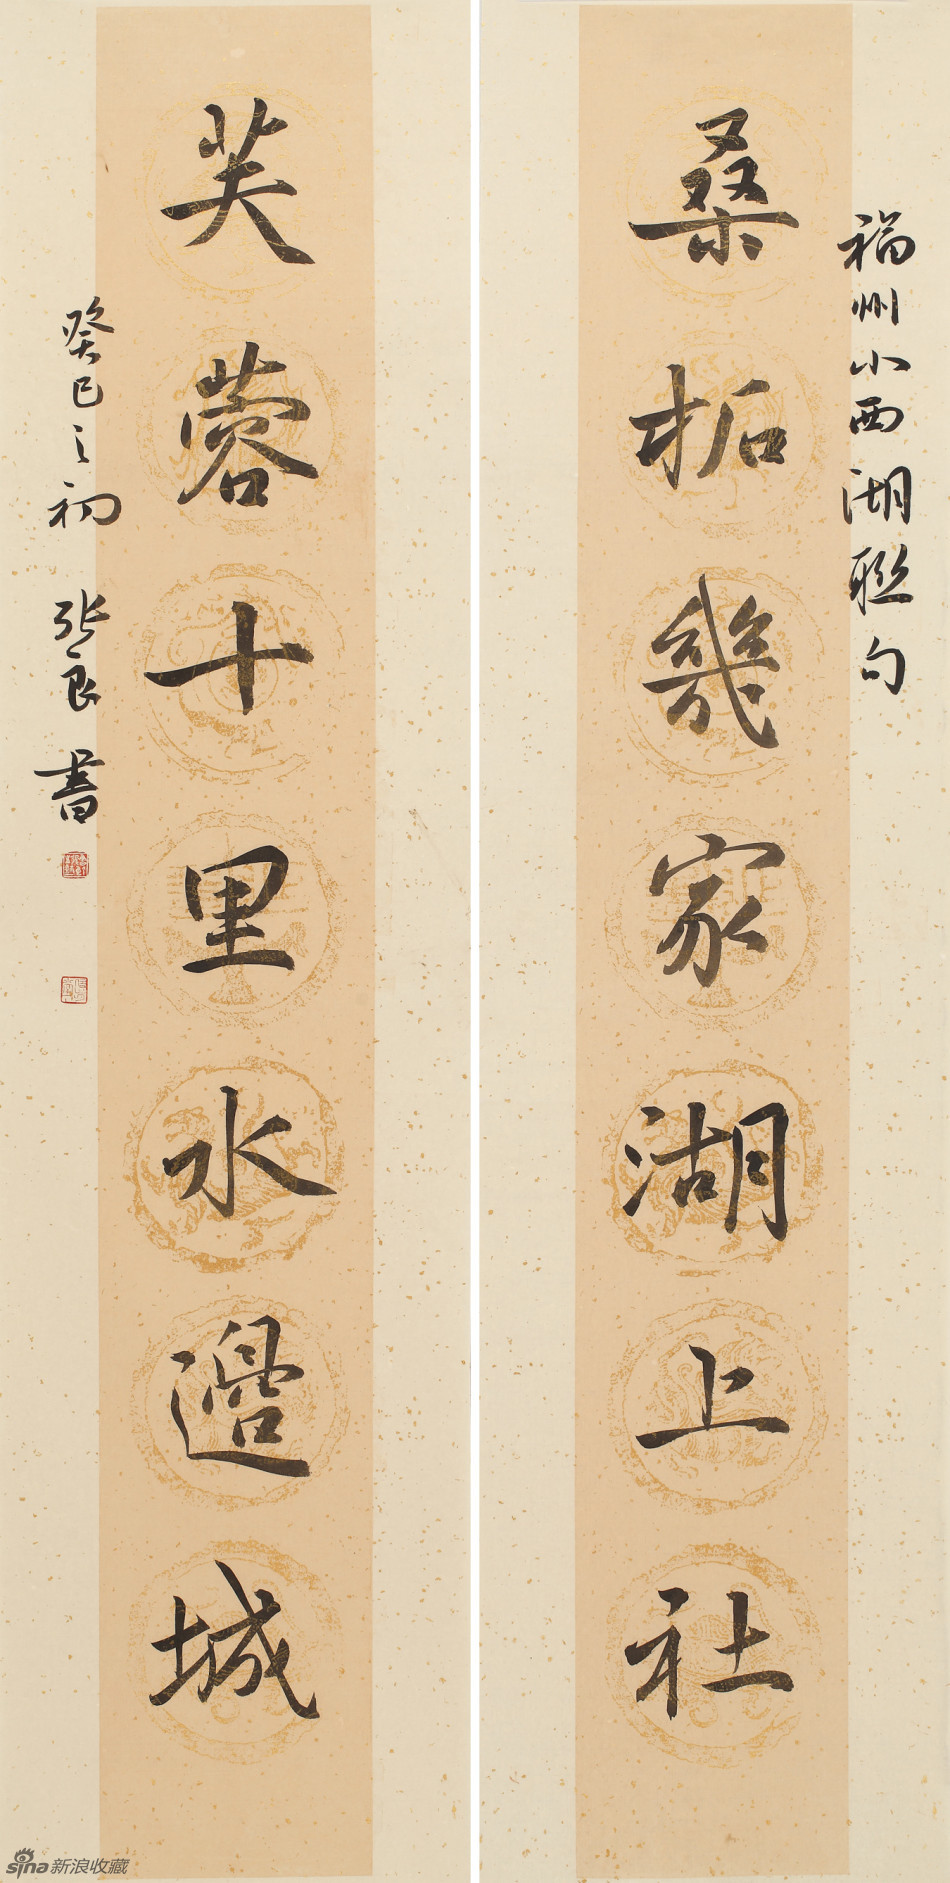 福州小西湖聯句
桑柘幾家湖上社
芙蓉十里水邊城
癸巳之初 張良書
sina新浪收藏